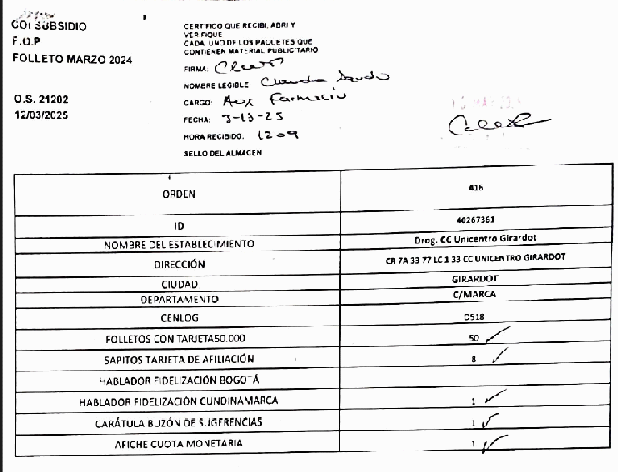 COLSUBSIDIO
F.O.P
FOLLETO MARZO 2024
O.S. 21202
12/03/2025
CERTIFICO QUE RECIBI, ABRI Y
VERIFIQUE
CADA UNO DE LOS PAQUETES QUE
CONTIENEN MATERIAL PUBLICITARIO
FIRMA:
NOMBRE LEGIBLE: Claudia
CARGO: Aux Farmacia
FECHA: 3-13-25
HORA RECIBIDO: 1209
SELLO DEL ALMACEN
ORDEN
ID 40267361
NOMBRE DEL ESTABLECIMIENTO Drog. CC Unicentro Girardot
DIRECCIÓN CR 7A 33 77 LC 1 33 CC UNICENTRO GIRARDOT
CIUDAD GIRARDOT
DEPARTAMENTO C/MARCA
CENLOG 0518
FOLLETOS CON TARJETA50.000 50
SAPITOS TARJETA DE AFILIACIÓN 8
HABLADOR FIDELIZACIÓN BOGOTÁ
HABLADOR FIDELIZACIÓN CUNDINAMARCA 1
CARÁTULA BUZÓN DE SUGERENCIAS 1
AFICHE CUOTA MONETARIA 1